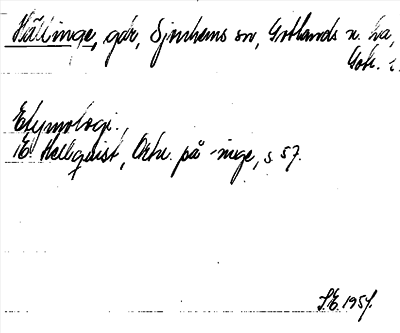 Hällinge, gdr, Sjonhems sn, Gotlands n. hd,
Gotl. l.
Etymologi.,
E Hellquist, Ortn. på -inge, s 57.
S.E. 1951.